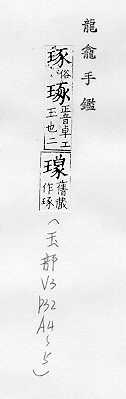 龍龕手鑑
琢俗
琢正音卓工
玉也二
舊藏
作琢
(玉部
V3
P32
A4~5)